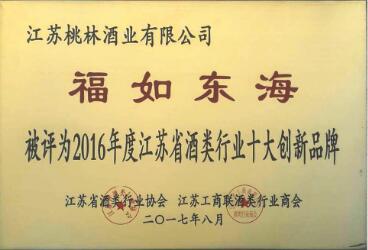 江苏桃林酒业有限公司
福如东海
被评为2016年度江苏省酒类行业十大创新品牌
江苏省酒类行业协会 江苏工商联酒类行业商会
二〇一七年八月